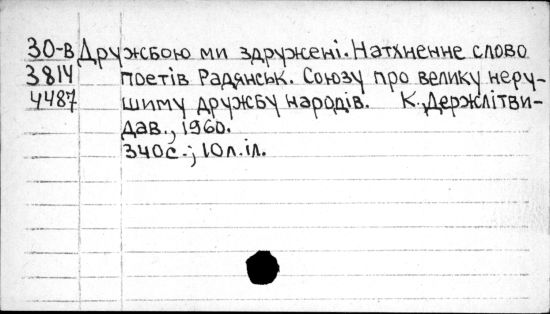 30-В Дружбою ми здружені. Натхненне слово
3814 поетів Радянськ. Союзу про велику неру-
4487 шиму дружбу народів. К., Держлітви-
дав., 1960.
340с.; 10л.іл.